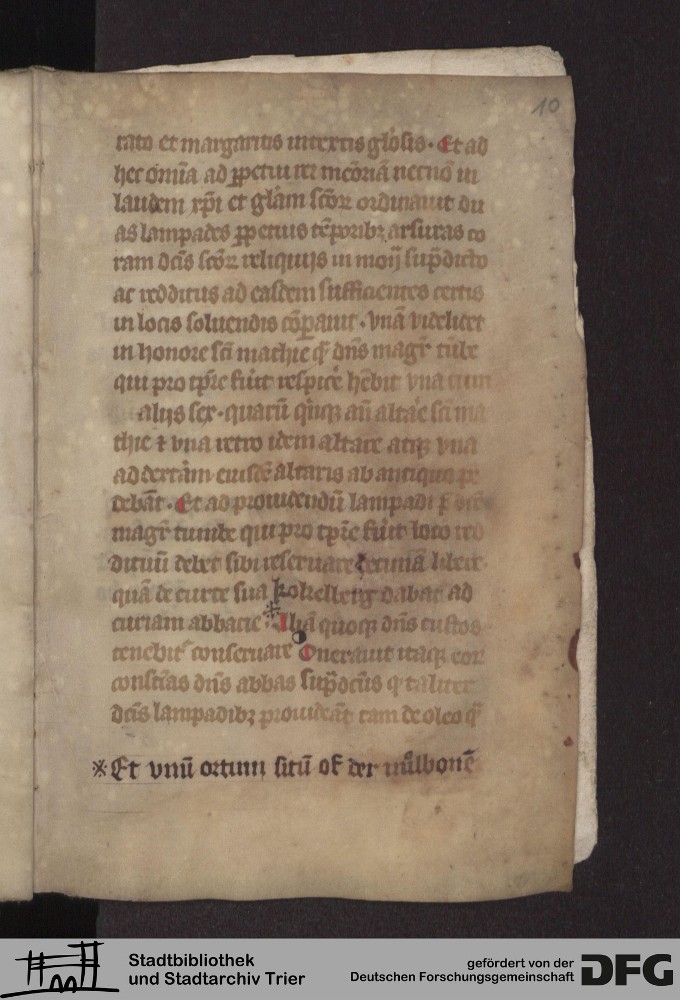 10
rato et margaritis intextis gloſis. Et ad
hec om̄ia ad ꝑpetui rei memoriā necnō in
laudem xp̄i et glām ſcōꝝ ordinauit du
as lampades ꝑpetuis tēporibꝫ arſuras co
ram dc̄is ſcōꝝ reliquijs in mon̄ ſup̄dicto
ac redditus ad eaſdem ſufficientes certis
in locis ſoluendis cōꝑauit. vnā videlicet
in honore ſc̄i mathie qͥ dn̄s magr̄ tūbe
qui pro tꝑe fūit reſpic̄e hēbit vna cum
alijs ſex. quarū qͥnqꝫ an̄ altāe ſc̄i ma
thie ⁊ vna retro idem altare atqꝫ vna
ad dextām eiuſdē altaris ab antiquo pe
debāt. Et ad prouidendū lampadi dn̄s
magr̄ tumbe qui pro tꝑe fūit loco red
dituū debet ſibi reſeruare decimā libere
quā de curte ſua kokelberg dabat ad
curiam abbacie. Aliā quoqꝫ dn̄s cuſtos
tenebitᷣ conſeruare Onerauit itaqꝫ eoꝝ
conſciās dn̄s abbas ſup̄dc̄us qͥ taliter
dc̄is lampadibꝫ prouideāt tam de oleo qͣ
※ Et vnū ortum ſitū of der mͦlbonē
Stadtbibliothek
und Stadtarchiv Trier
gefördert von der
Deutschen Forschungsgemeinschaft
DFG